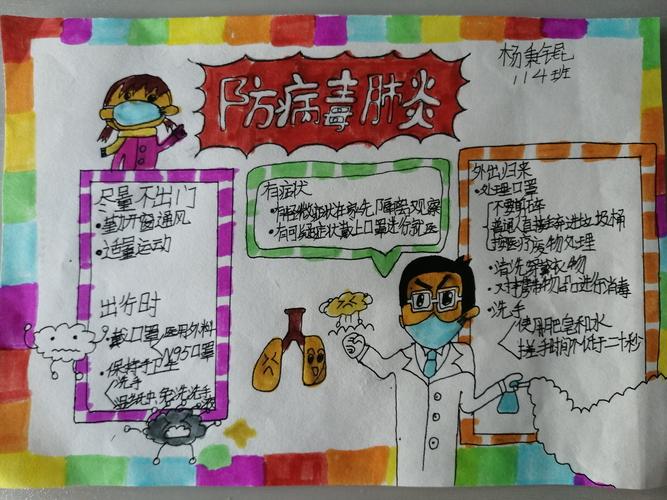 防病毒肺炎
杨秉锟
114班
尽量不出门
·勤开窗通风
·适量运动
出行时
·戴口罩 医用外科
N95口罩
·保持手卫生
洗手
免洗洗手液
有症状
·有轻微症状在家先隔离观察
·有可疑症状戴上口罩进行就医
外出归来
·处理口罩
不要乱碎
普通人直接弃进垃圾桶
按医疗废物处理
·清洗穿戴衣物
·对携带物品进行消毒
·洗手
使用肥皂和水
搓手时间不低于二十秒